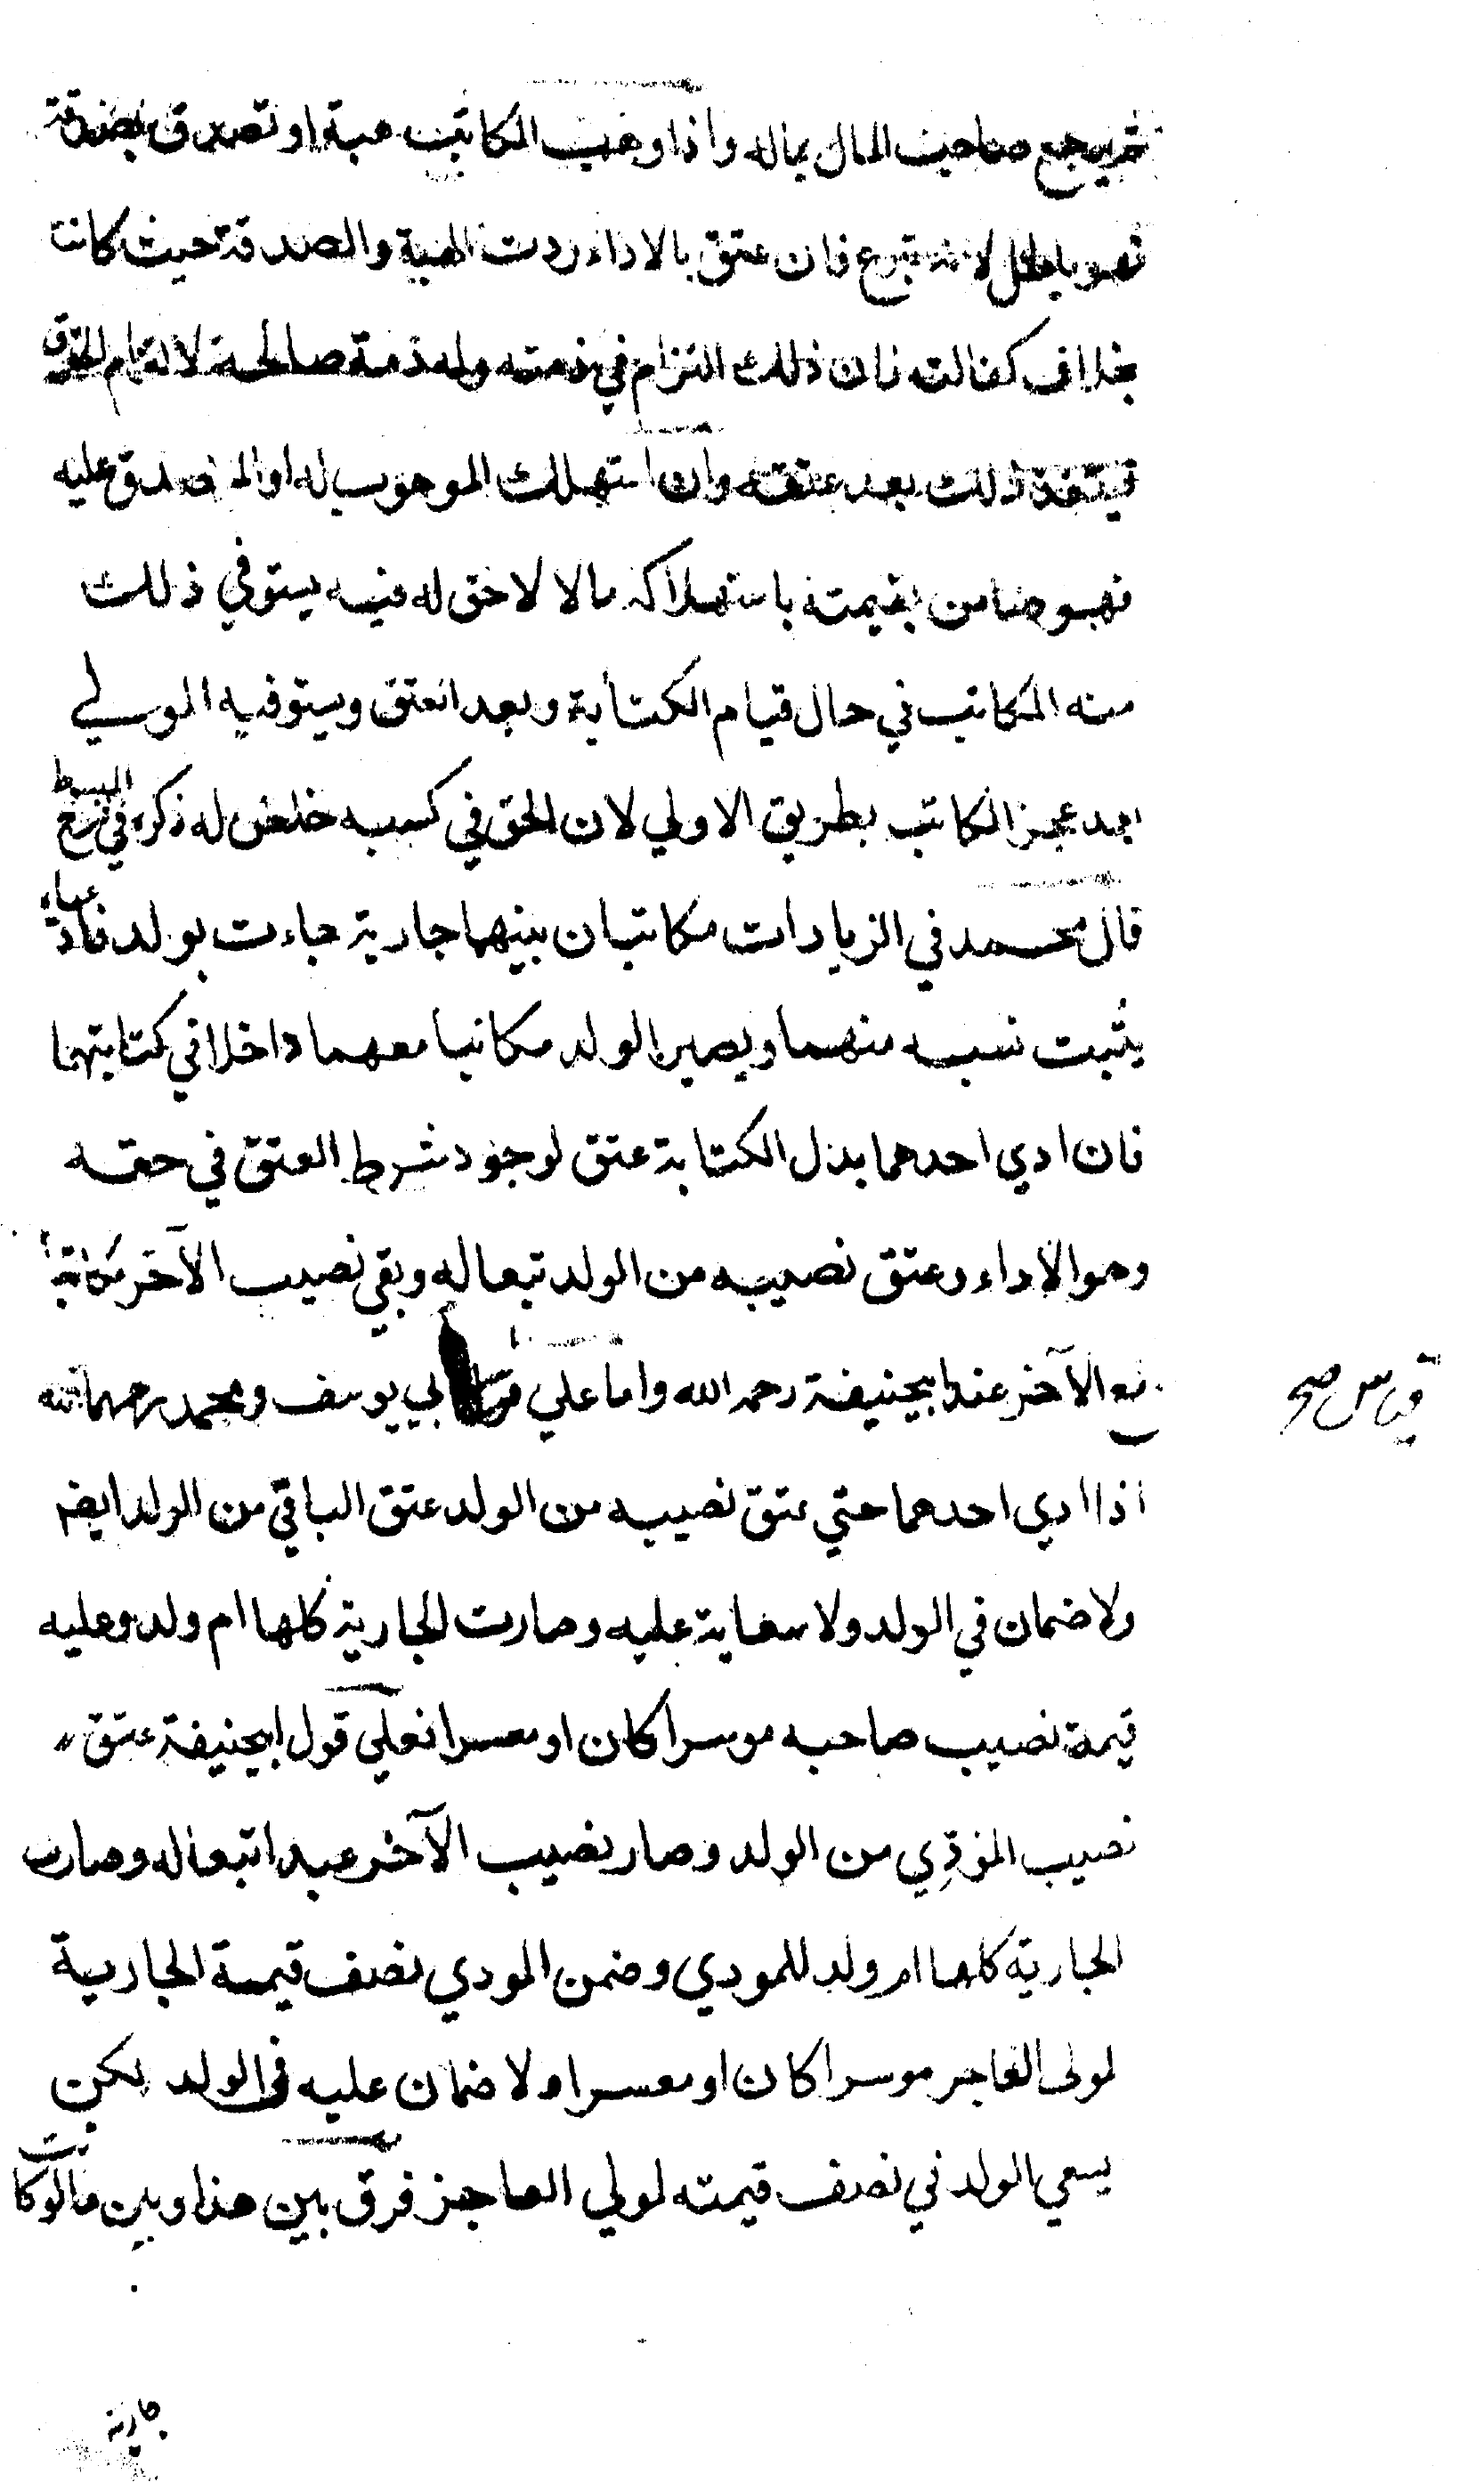 ثم يرجع صاحب المال بماله واذا وهب المكاتب هبة او تصدق بصدقة
فهو باطل لانه تبرع فان عتق بالاداء ردت الهبة والصدقة حيث كانت
بخلاف كفالته فان ذلك التزام في ذمته وله ذمة صالحة لالتزام الحقوق
فينفذ ذلك بعد عتقه وان استهلك الموهوب له او المتصدق عليه
فهو ضامن بقيمته باستهلاكه مالا لا حق له فيه يستوفي ذلك
منه المكاتب في حال قيام الكتابة وبعد العتق ويستوفيه المولي
بعد عجز المكاتب بطريق الاولي لان الحق في كسبه خلص له ذكره في المبسوط
قال محمد في الزيادات مكاتبان بينهما جارية جاءت بولد فادعياه
يثبت نسبه منهما ويصير الولد مكاتبا معهما داخلا في كتابتهما
فان ادي احدهما بدل الكتابة عتق لوجود شرط العتق في حقه
وهو الاداء وعتق نصيبه من الولد تبعا له وبقي نصيب الآخر مكاتبا
مع الآخر عند ابيحنيفة رحمه الله واما علي ابي يوسف ومحمد رحمهما الله
قياس صح
اذا ادي احدهما حتي عتق نصيبه من الولد عتق الباقي من الولد ايضه
ولا ضمان في الولد ولا سعاية عليه وصارت الجارية كلها ام ولد وعليه
قيمة نصيب صاحبه موسرا كان او معسرا فعلي قول ابيحنيفة عتق
نصيب المؤدي من الولد وصار نصيب الآخر عبدا تبعا له وصارت
الجارية كلها ام ولد للمودي وضمن المودي نصف قيمة الجارية
لمولى العاجز موسرا كان او معسرا ولا ضمان عليه في الولد لكن
يسعي الولد في نصف قيمته لمولي العاجز فرق بين هذا وبين ما لو كانت
جارية